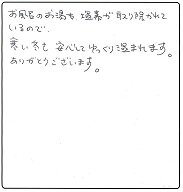 お風呂のお湯も、塩素が取り除かれて
いるので、
寒い冬も 安心してゆっくり温まれます。
ありがとうございます。